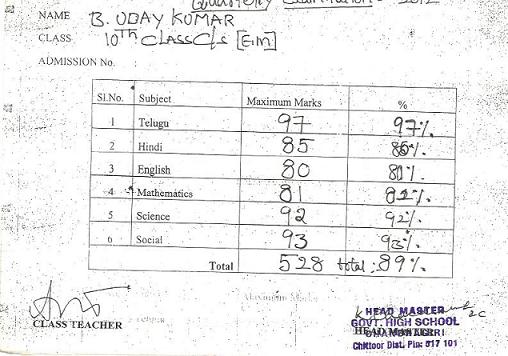 Quarterly Examination - 2012
NAME B. UDAY KUMAR
CLASS 10TH CLASS C/s [E.M]
ADMISSION No.
Sl.No. Subject Maximum Marks %
1 Telugu 97 97%.
2 Hindi 85 85%.
3 English 80 80%.
4 Mathematics 81 81%.
5 Science 92 92%.
6 Social 93 93%.
Total 528 total: 89%.
CLASS TEACHER
HEAD MASTER
HEAD MASTER
GOVT. HIGH SCHOOL
Chittoor Dist. Pin: 517 101